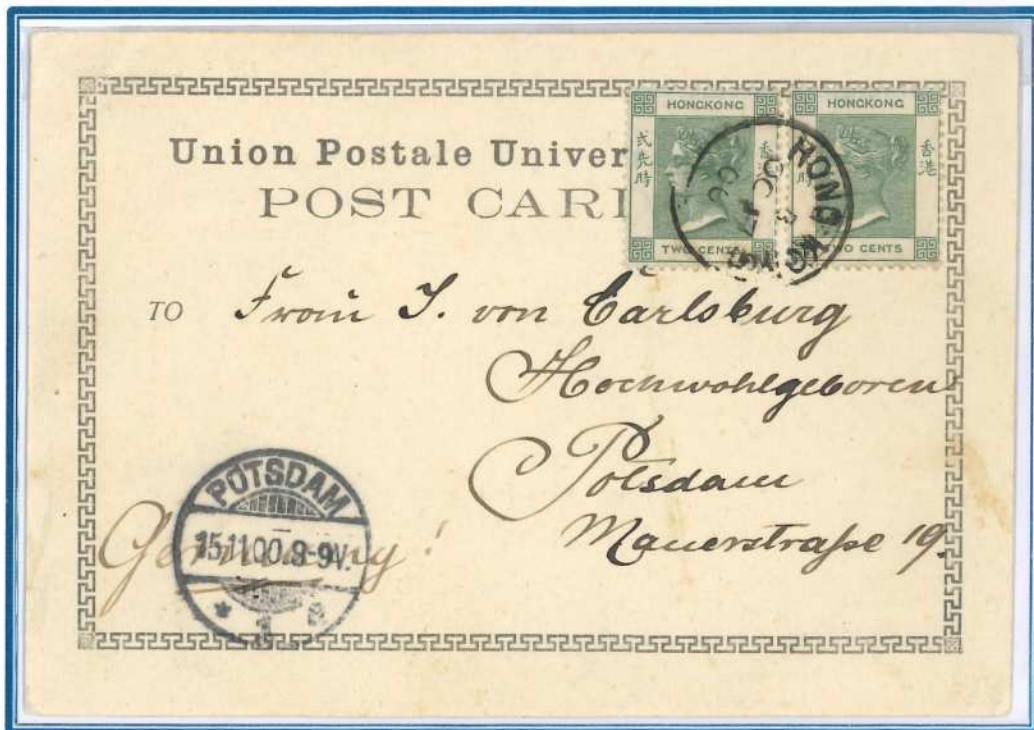 Union Postale Univer
POST CAR
HONGKONG
弍先時
香港
TWO CENTS
HONGKONG
時
香港
TWO CENTS
HONG KONG
OC 17
00
TO
Frau J. von Carlsburg
Hochwohlgeboren
Potsdam
Mauerstraße 19.
Germany!
POTSDAM
15.11.00.8-9V.
* 1 a